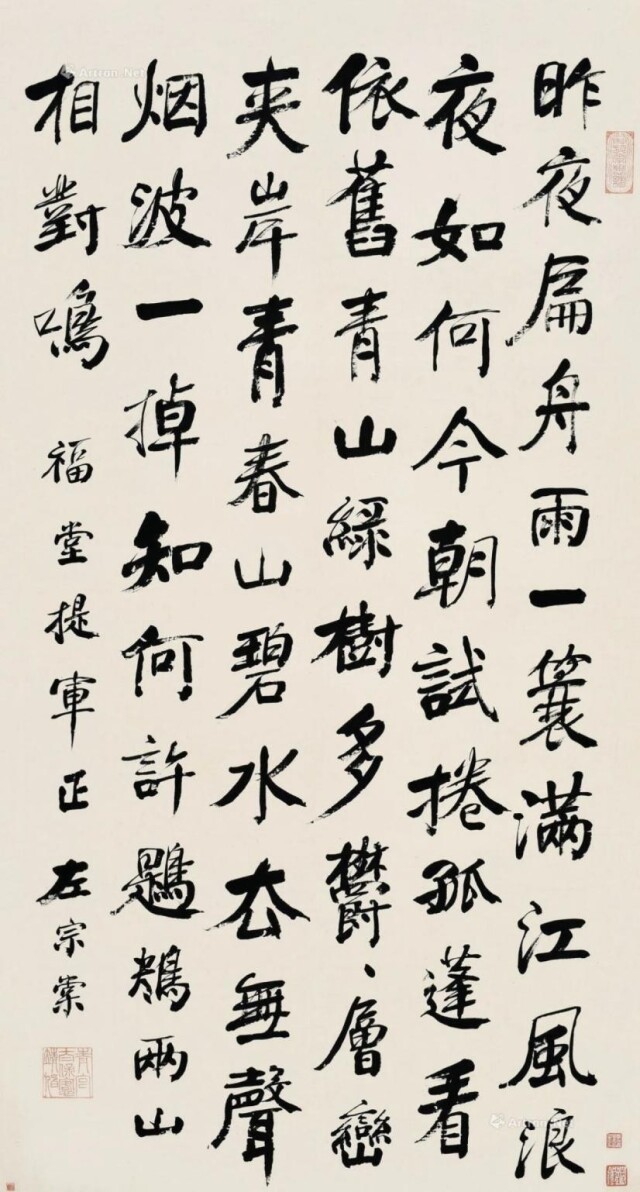 昨夜扁舟雨一簑滿江風浪
夜如何今朝試捲孤蓬看
依舊青山綠樹多鬱、層巒
夾岸青春山碧水去無聲
烟波一掉知何許鶗鴂兩山
相對鳴
福堂提軍正
左宗棠
Artron.Net